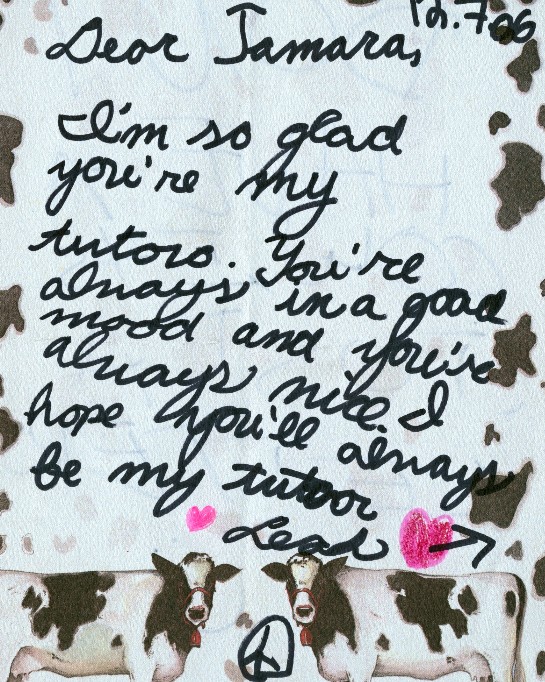 12.7.06
Dear Tamara,
I'm so glad
you're my
tutor. You're
always in a good
mood and you're
always nice. I
hope you'll always
be my tutoor
Leah